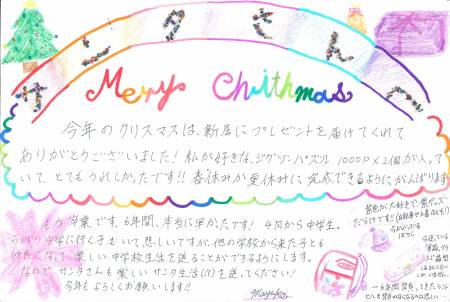 サンタさんへ
Merry Chrithmas
今年のクリスマスは、新居にプレゼントを届けてくれて
ありがとうございました!私が好きな、ジグソーパズル1000P×2個が入って
いて、とてもうれしかったです!!春休みか夏休みに完成できるようにがんばります
もう卒業です。6年間、本当に早かったです!4月から中学生。
ちがう中学に行く子もいて悲しいですが、他の学校から来た子とも
仲良くなって楽しい中学校生活を送ることができるようにします。
なので、サンタさんも楽しいサンタ生活(?)を送ってください!
今年もよろしくお願いします!!
紫色が大好きで、紫グッズ
だらけです!!
今使っている
6年間背負ってきたランド